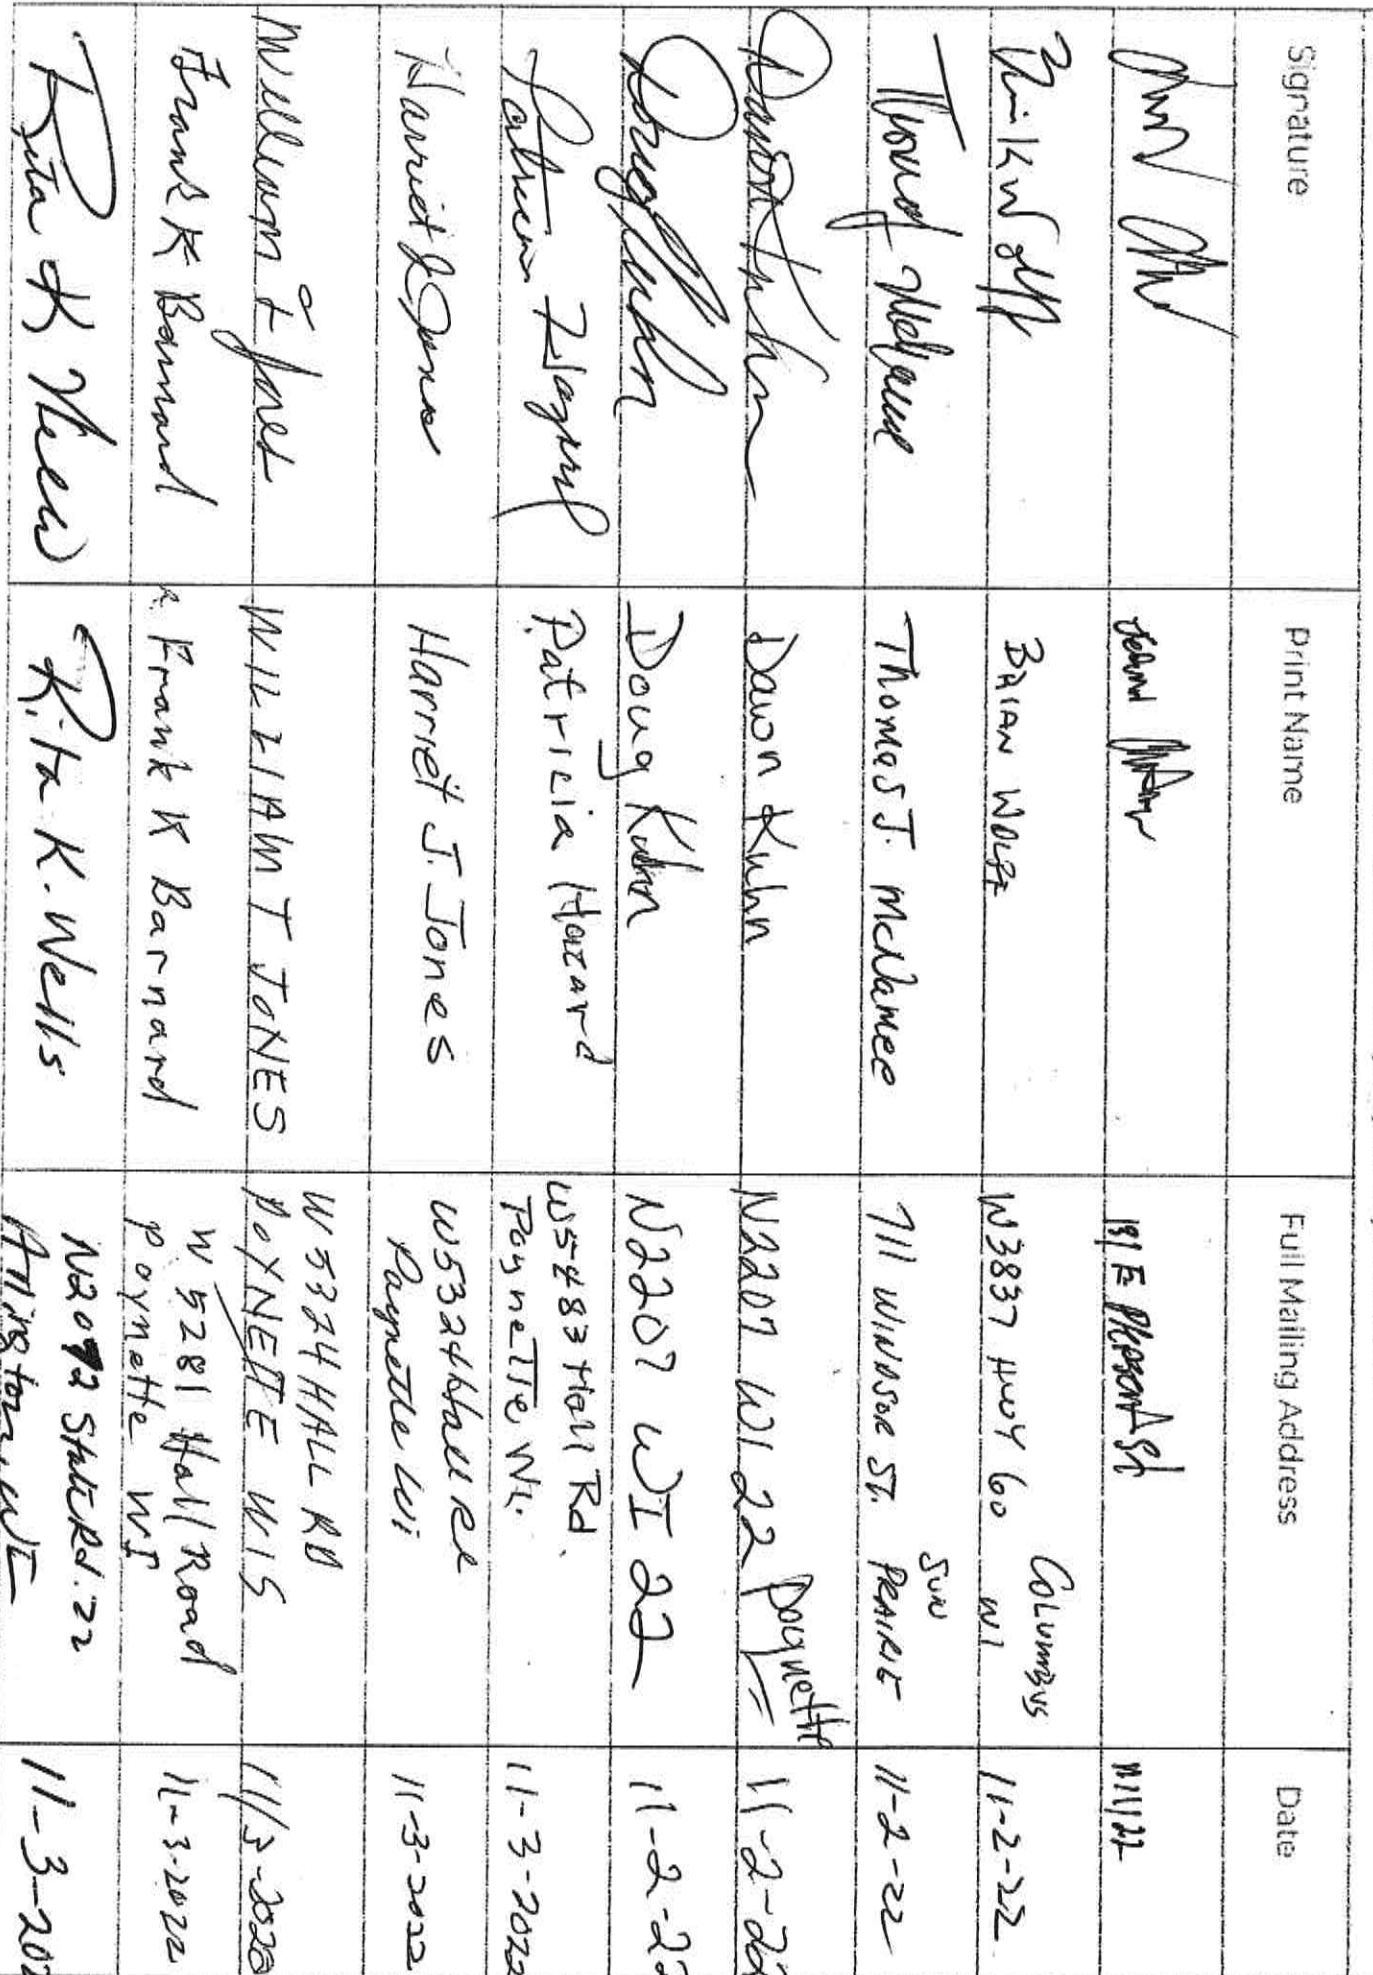 Signature Print Name Full Mailing Address Date
191 E Pleasant St 11/1/22
Brian Wolff BRIAN WOLFF W3837 HWY 60 COLUMBUS WI 11-2-22
Thomas J. McNamee 711 WINDSOR ST. SUN PRAIRIE 11-2-22
Dawn Kuhn N2207 WI 22 Poynette 11-2-22
Doug Kuhn Doug Kuhn N2207 WI 22 11-2-22
Patricia Hazard Patricia Hazard W5483 Hall Rd.
Poynette Wi. 11-3-2022
Harriet J Jones Harriet J. Jones W5324 Hall Rd
Poynette Wi 11-3-2022
William T Jones WILLIAM T JONES W5324 HALL RD
POYNETTE WIS 11/3-2022
Frank K Barnard Frank K Barnard W5281 Hall Road
Poynette WI 11-3-2022
Rita K Wells Rita K. Wells N2092 State Rd. 22
Arlington, WI 11-3-202